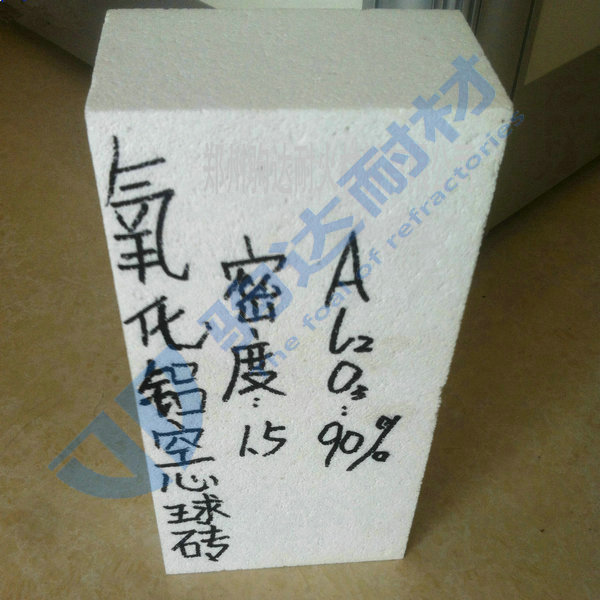 氧化铝空心球砖
密度:1.5
Al2O3:90%
郑州驹达耐火
驹达耐材
The foal of refractories